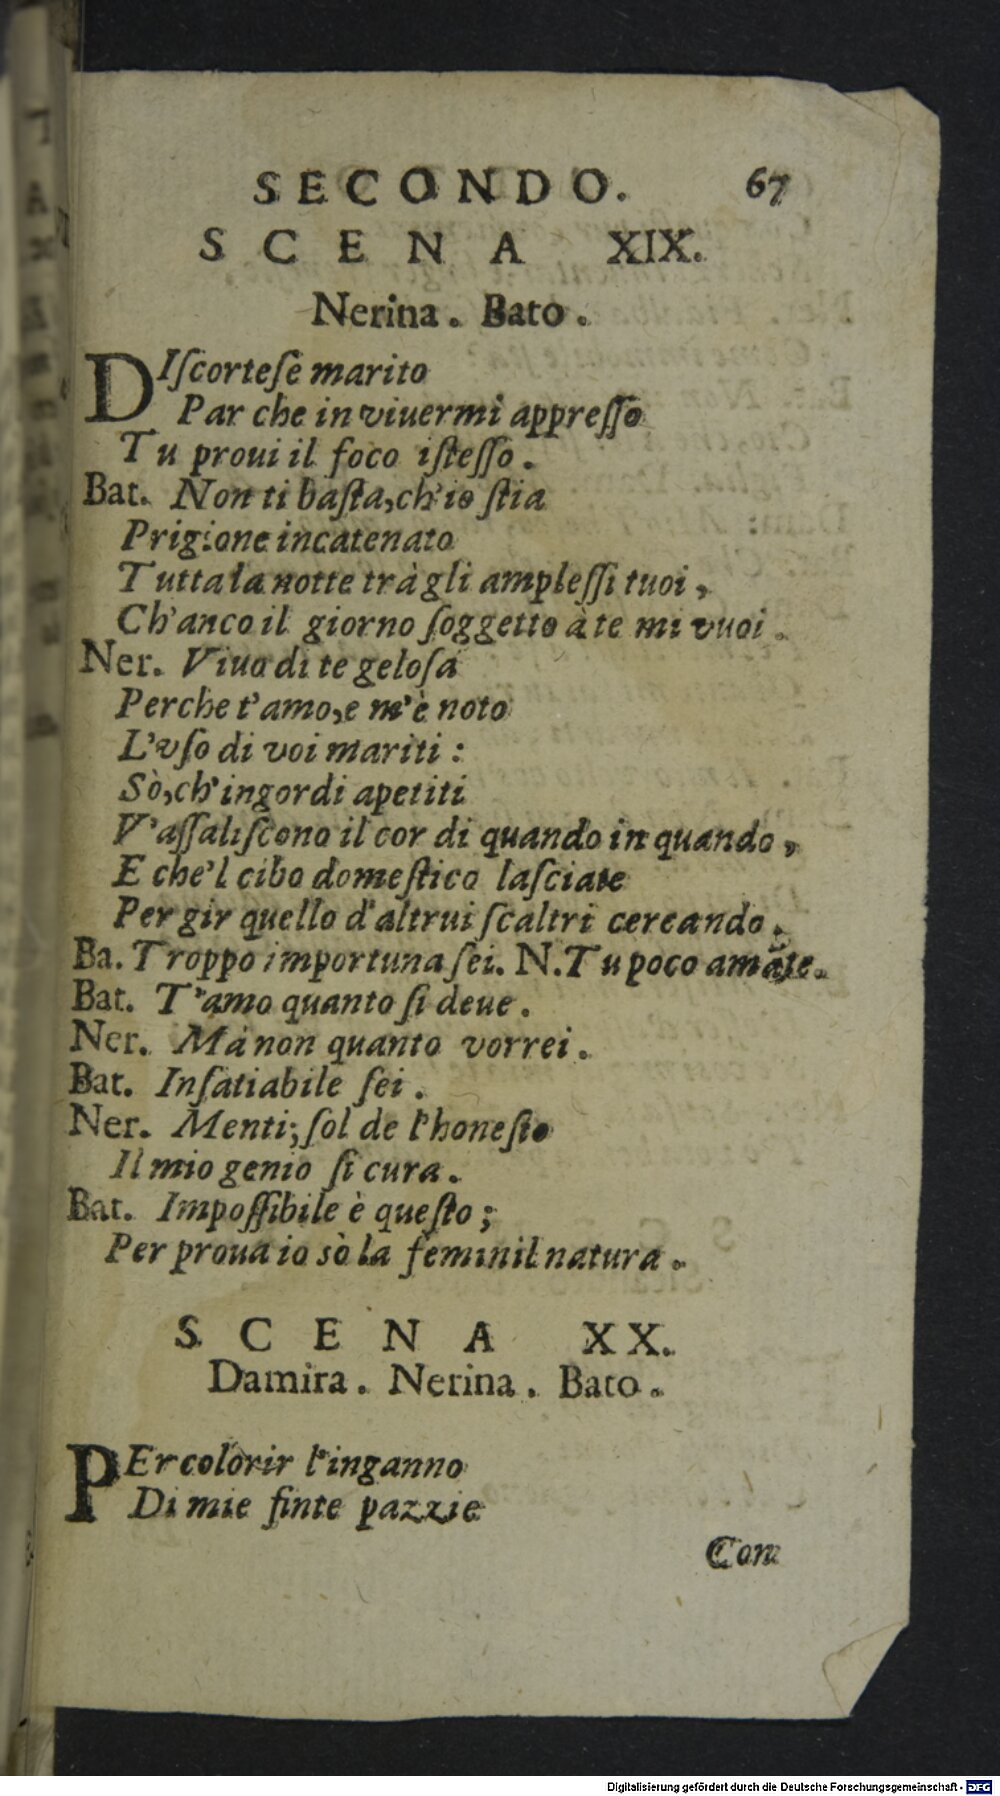 SECONDO. 67
SCENA XIX.
Nerina. Bato.
DIſcorteſe marito
Par che in viuermi appreſſo
Tu proui il foco iſteſſo.
Bat. Non ti baſta, ch'io ſtia
Prigione incatenato
Tutta la notte trà gli ampleſſi tuoi,
Ch'anco il giorno ſoggetto à te mi vuoi.
Ner. Viuo di te geloſa
Perche t'amo, e m'è noto
L'vſo di voi mariti:
Sò, ch'ingordi apetiti
V'aſſaliſcono il cor di quando in quando,
E che'l cibo domeſtico laſciate
Per gir quello d'altrui ſcaltri cercando.
Ba. Troppo importuna ſei. N. Tu poco amãte.
Bat. T'amo quanto ſi deue.
Ner. Mà non quanto vorrei.
Bat. Inſatiabile ſei.
Ner. Menti; ſol de l'honeſto
Il mio genio ſi cura.
Bat. Impoſſibile è queſto;
Per proua io sò la feminil natura.
SCENA XX.
Damira. Nerina. Bato.
PEr colorir l'inganno
Di mie finte pazzie
Com
Digitalisierung gefördert durch die Deutsche Forschungsgemeinschaft - DFG